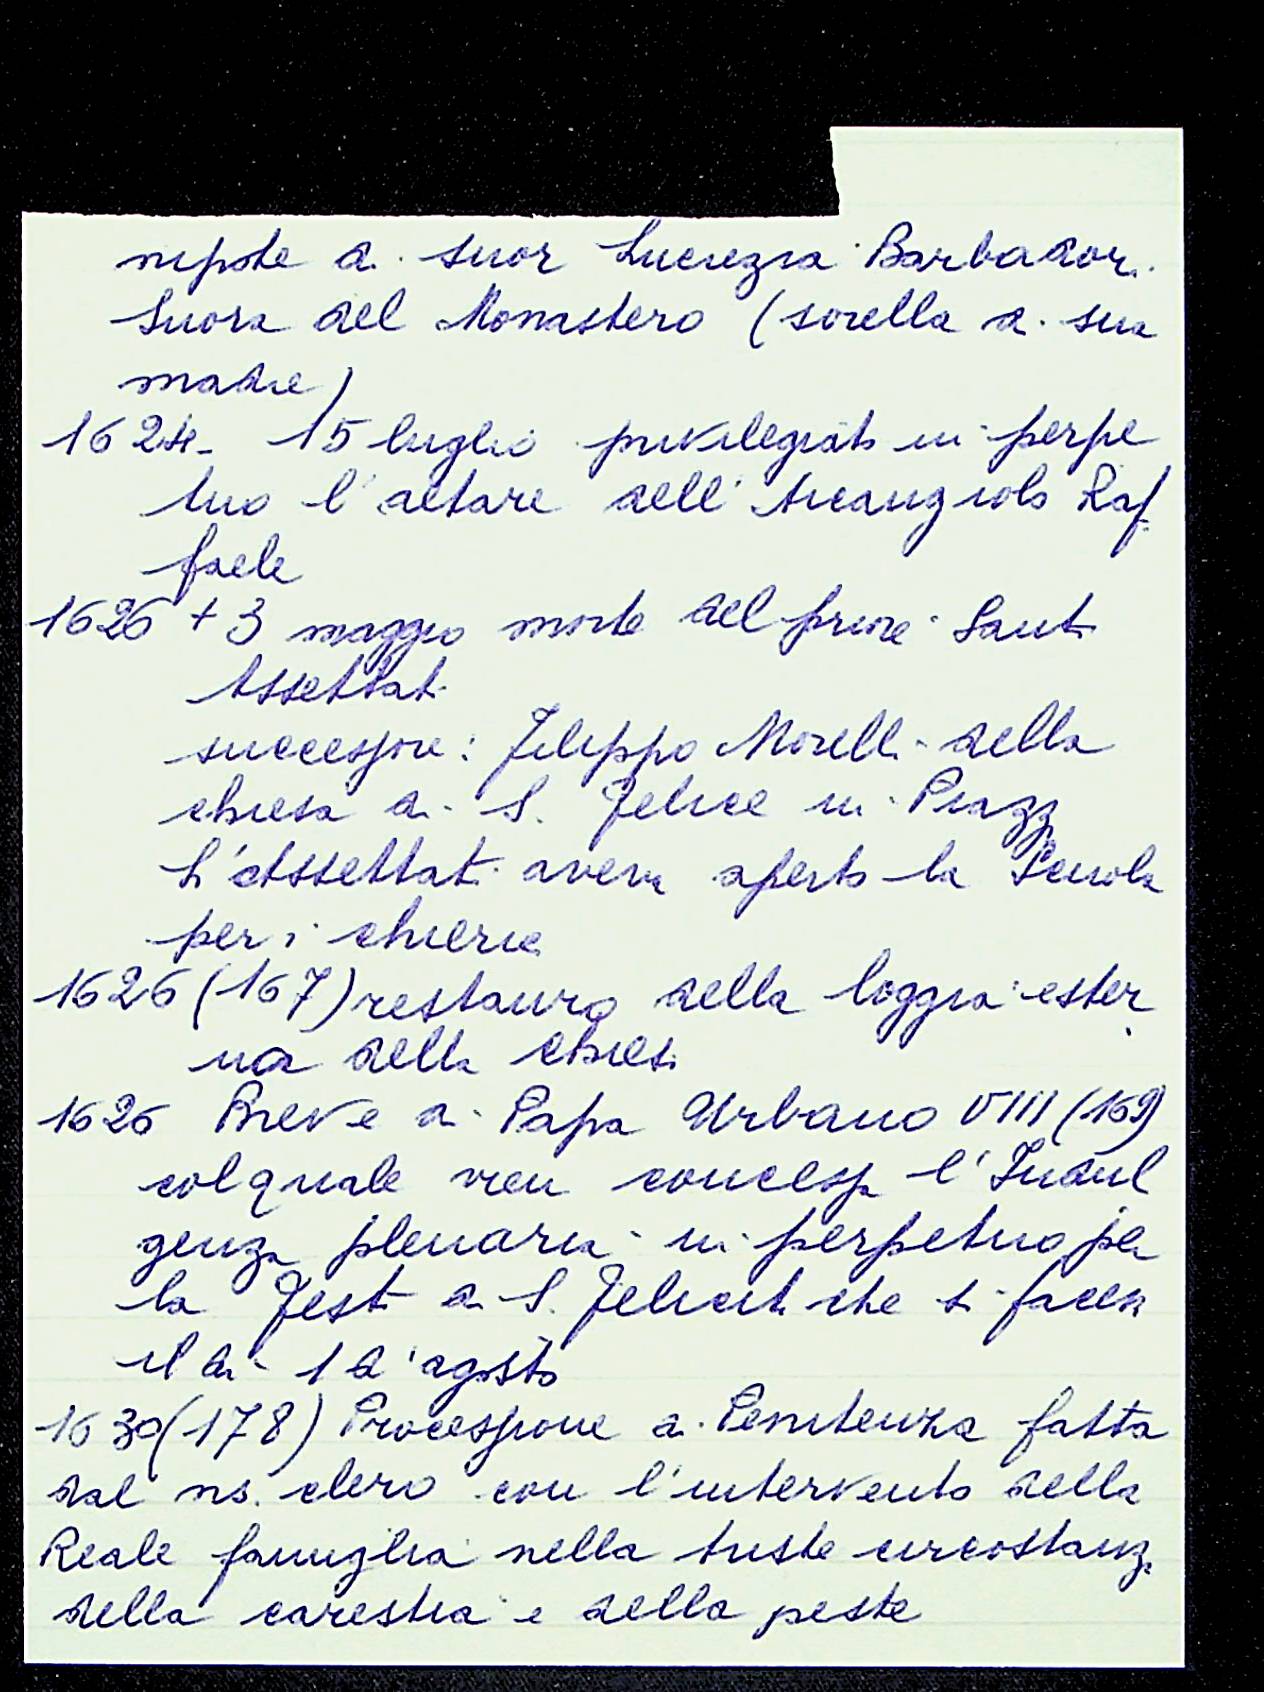 nipote di suor Lucrezia Barbadori
Suora del Monastero (sorella di sua
madre)
1624 - 15 luglio privilegiato in perpe
tuo l'altare dell'Arcangiolo Raf
faele
1626 + 3 maggio morte del priore Santi
Assettati
successore: Filippo Morelli della
chiesa di S. Felice in Piazza
L'Assettati aveva aperto la Scuola
per i chierici
1626 (167) restauro della loggia ester
na della chiesa
1626 Breve di Papa Urbano VIII (169)
col quale vien concessa l'Indul
genza plenaria in perpetuo per
la Festa di S. Felicita che si faceva
il dì 1 d'agosto
1630 (178) Processione di Penitenza fatta
dal ns. clero con l'intervento della
Reale famiglia nella triste circostanza
della carestia e della peste